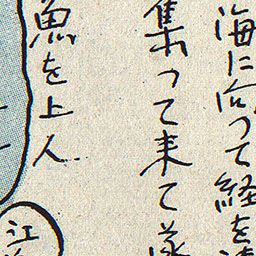 海に向つて経を
集つて来て
魚を上人
江